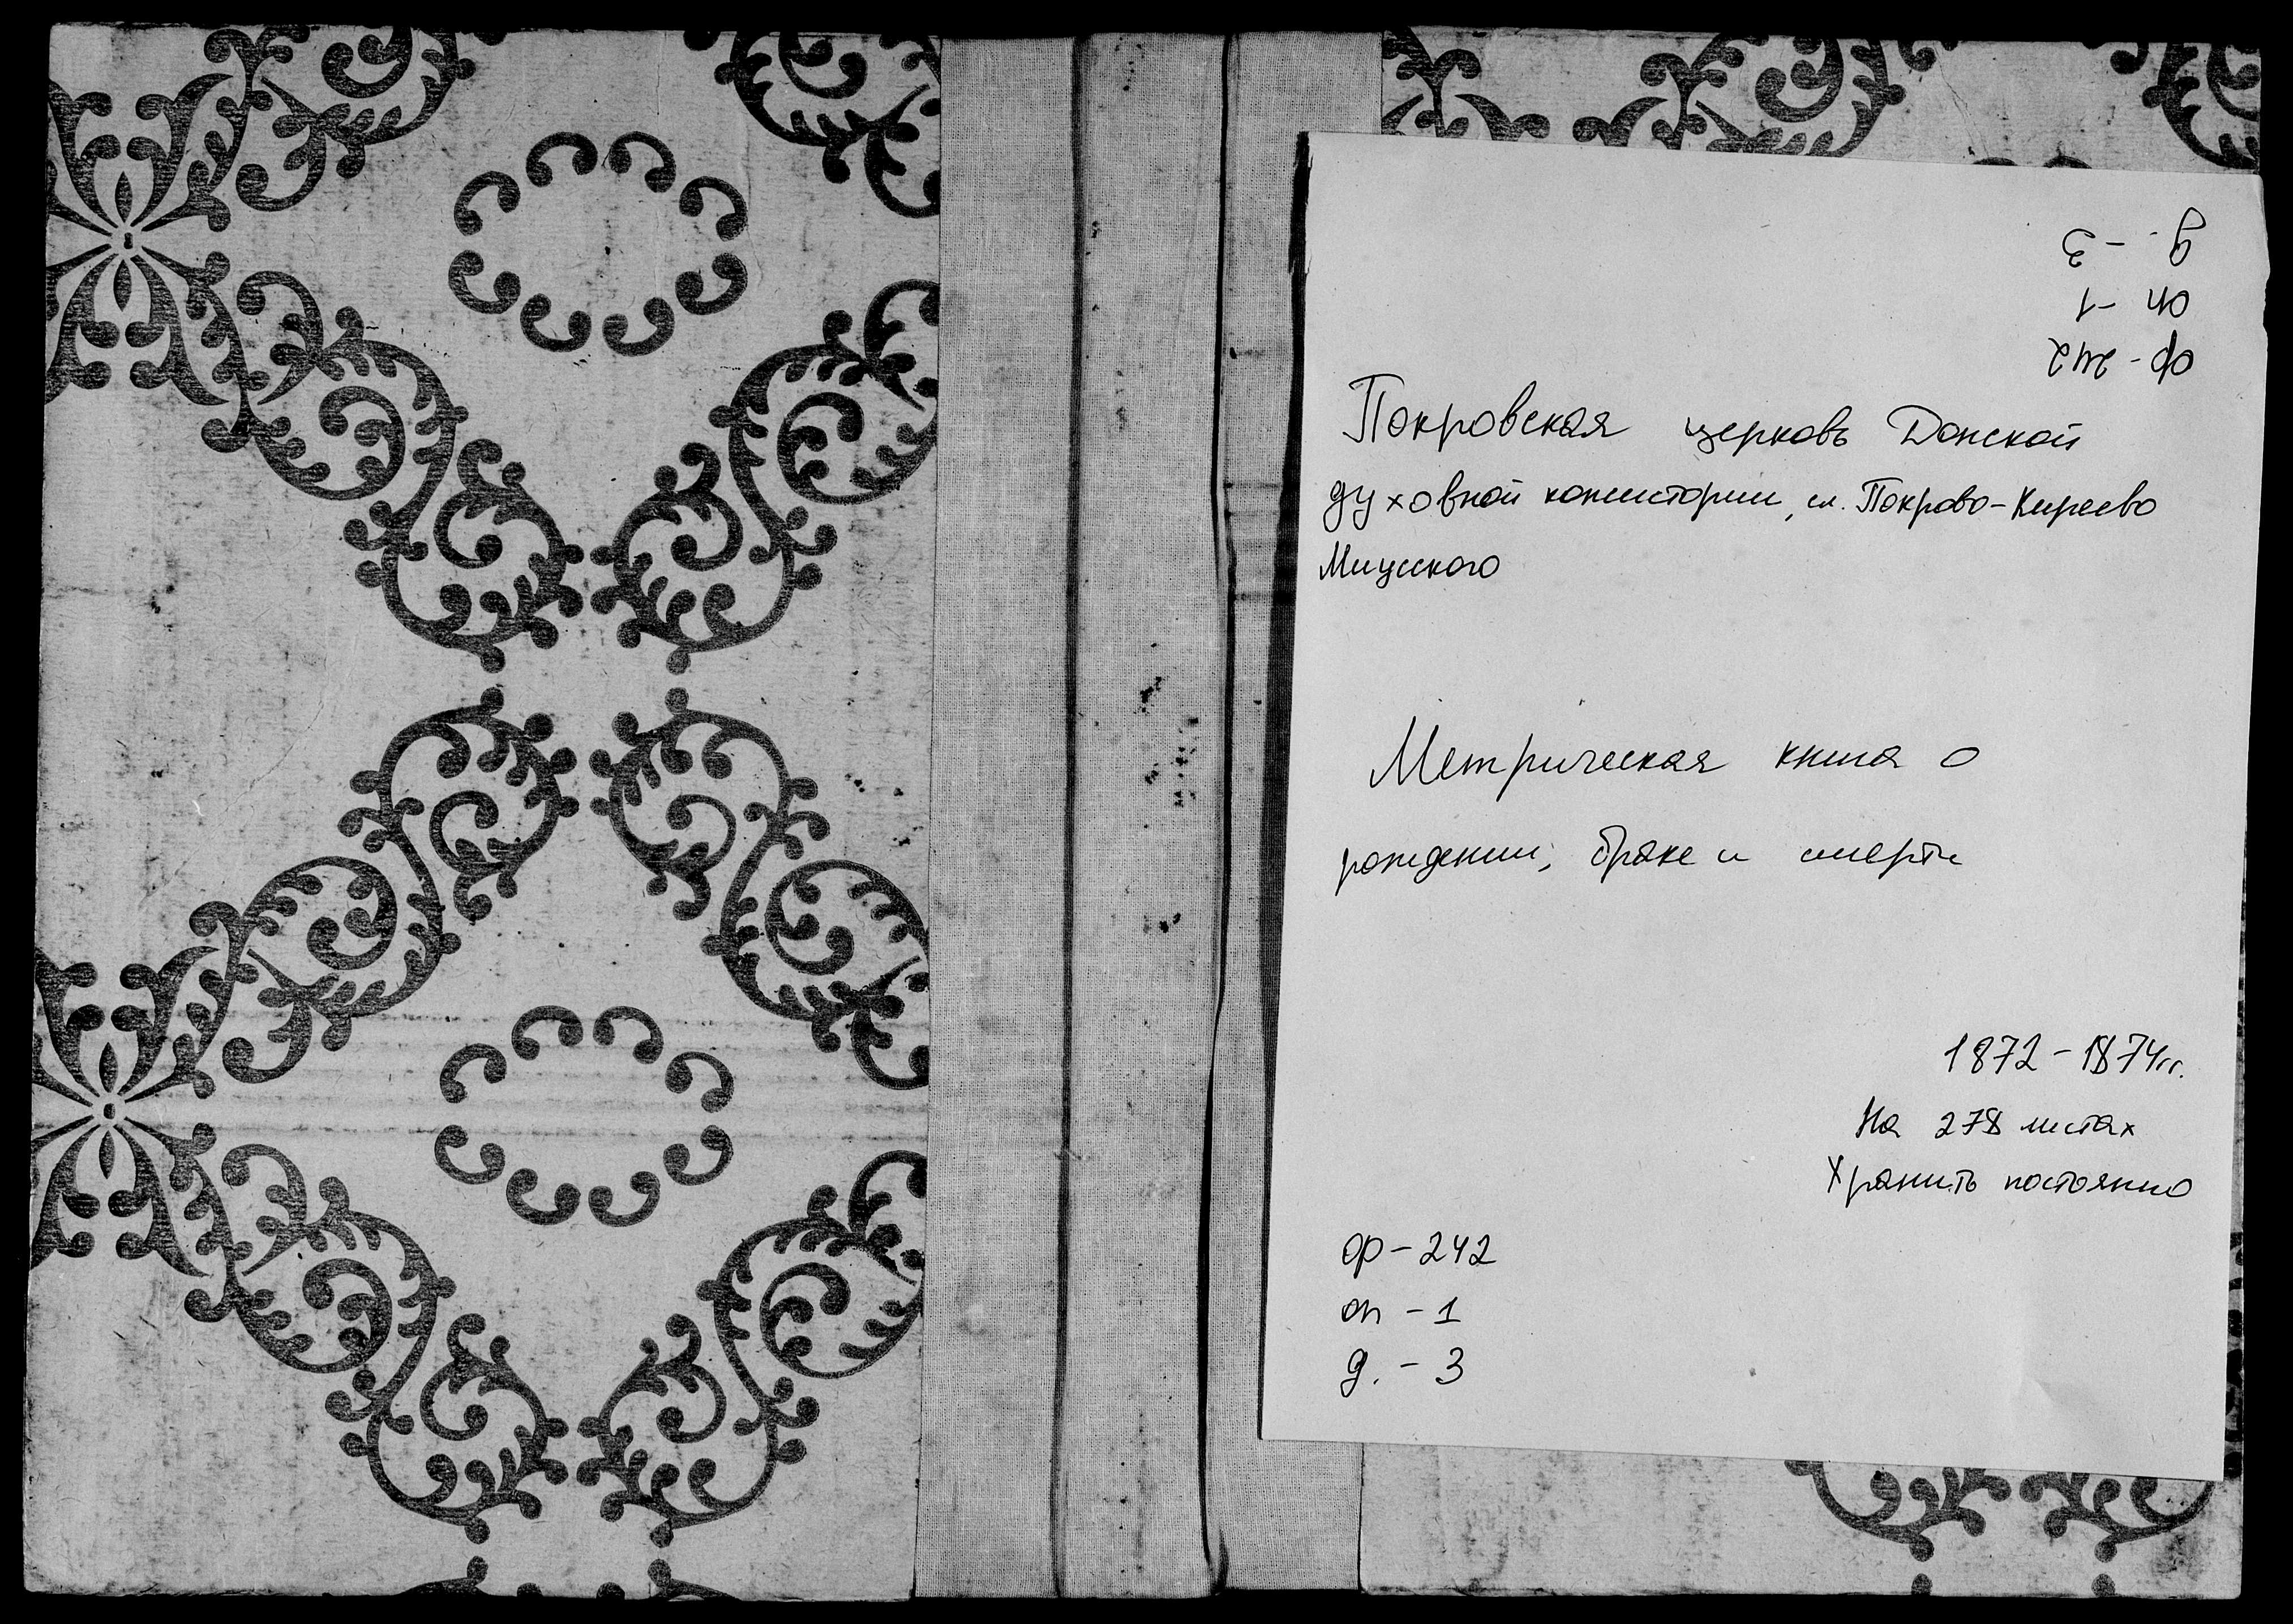 д. - 3
оп - 1
ф - 242
Покровская церковь Донской
духовной консистории, сл. Покрово-Киреево
Миусского
Метрическая книга о
рождении, браке и смерти
1872 - 1874 гг.
На 278 листах
Хранить постоянно
ф - 242
оп - 1
д. - 3